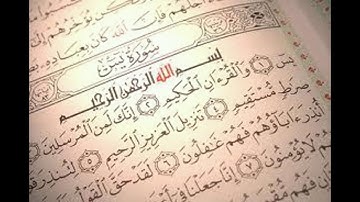 يُؤَخِّرُهُمْ إِلَىٰ
أَجَلُهُمْ فَإِنَّ ٱللَّهَ كَانَ بِعِبَادِهِ
سُورَةُ يسٓ
بِسْمِ ٱللَّهِ ٱلرَّحْمَٰنِ ٱلرَّحِيمِ
يسٓ ١ وَٱلْقُرْءَانِ ٱلْحَكِيمِ ٢ إِنَّكَ لَمِنَ ٱلْمُرْسَلِينَ
صِرَٰطٍ مُّسْتَقِيمٍ ٤ تَنزِيلَ ٱلْعَزِيزِ ٱلرَّحِيمِ ٥ لِتُنذِرَ
أُنذِرَ ءَابَآؤُهُمْ فَهُمْ غَٰفِلُونَ ٦ لَقَدْ حَقَّ ٱلْقَوْلُ
لَا يُؤْمِنُونَ ٧ إِنَّا جَعَلْنَا فِىٓ